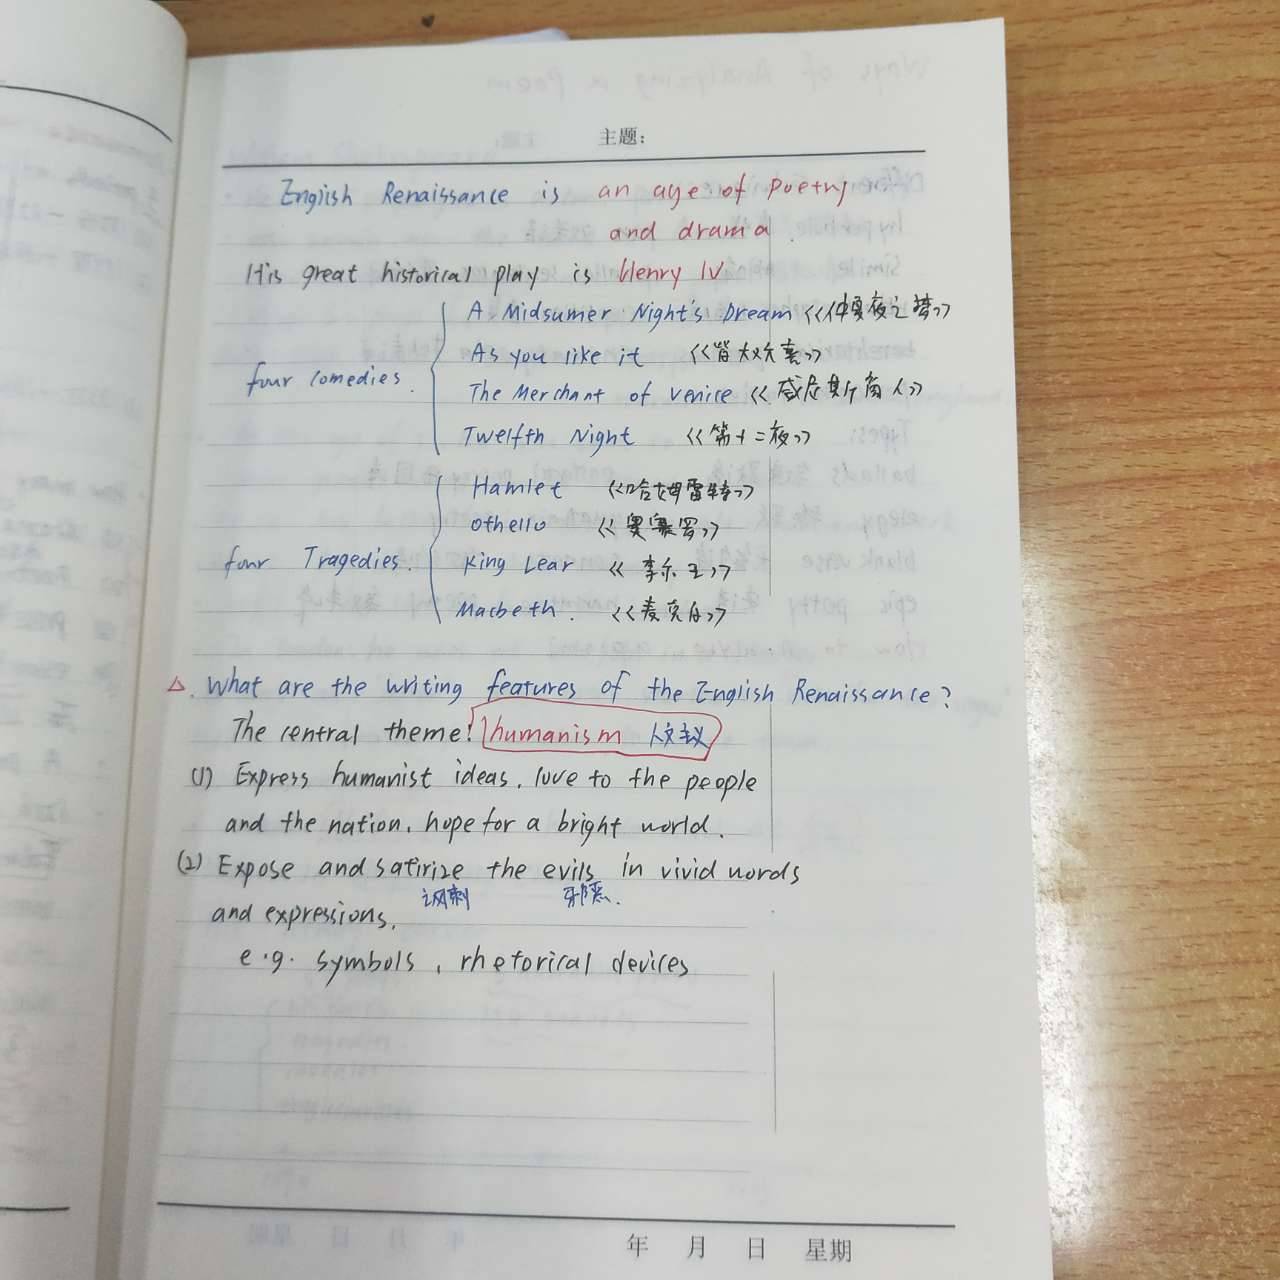 主题:
English Renaissance is an age of Poetry
and drama.
His great historical play is Henry IV
four Comedies.
A Midsumer Night's Dream《仲夏夜之梦》
As you like it 《皆大欢喜》
The Merchant of Venice《威尼斯商人》
Twelfth Night 《第十二夜》
four Tragedies.
Hamlet 《哈姆雷特》
Othello 《奥赛罗》
King Lear 《李尔王》
Macbeth. 《麦克白》
△. What are the writing features of the English Renaissance?
The central theme: humanism 人文主义
(1) Express humanist ideas, love to the people
and the nation, hope for a bright world.
(2) Expose and satirize the evils in vivid words
讽刺 邪恶.
and expressions.
e.g. symbols, rhetorical devices
年 月 日 星期